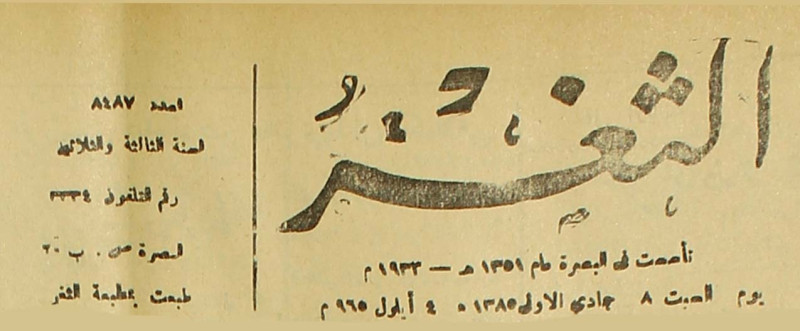 الثغر
تأسست في البصرة عام ١٣٥١ هـ — ١٩٣٣ م
يوم السبت ٨ جمادي الاولى ١٣٨٥ هـ ٤ أيلول ٩٦٥ م
العدد ٨٤٨٧
السنة الثالثة والثلاثين
رقم التلفون
البصرة ص . ب ٦٠
طبعت بمطبعة الثغر